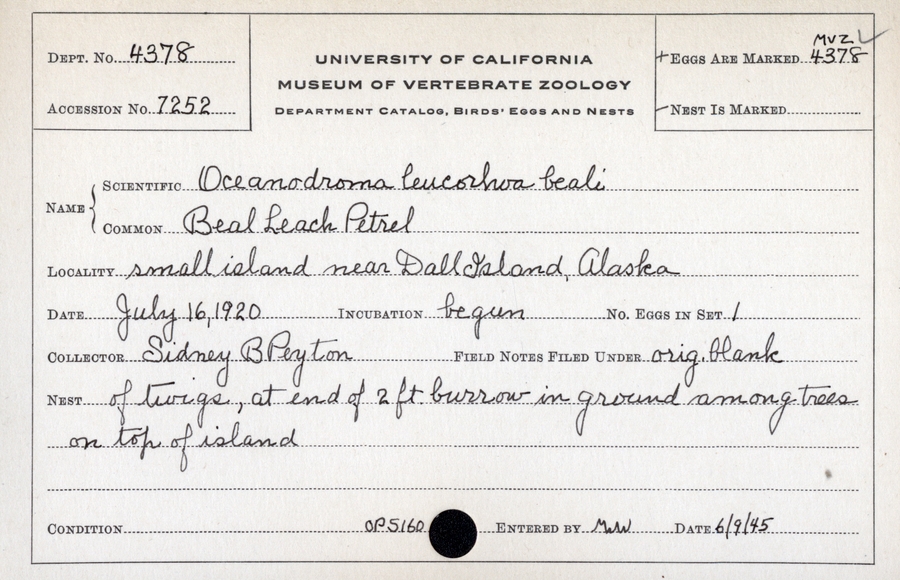 Dept. No. 4378
Accession No. 7252
University of California
Museum of Vertebrate Zoology
Department Catalog, Birds' Eggs and Nests
MVZ
+ Eggs Are Marked 4378
- Nest Is Marked
Name
Scientific Oceanodroma leucorhoa beali
Common Beal Leach Petrel
Locality small island near Dall Island, Alaska
Date July 16, 1920 Incubation begun No. Eggs in Set 1
Collector Sidney B Peyton Field Notes Filed Under orig. blank
Nest of twigs, at end of 2 ft. burrow in ground among trees
on top of island
Condition OP5160 Entered by Date 6/9/45